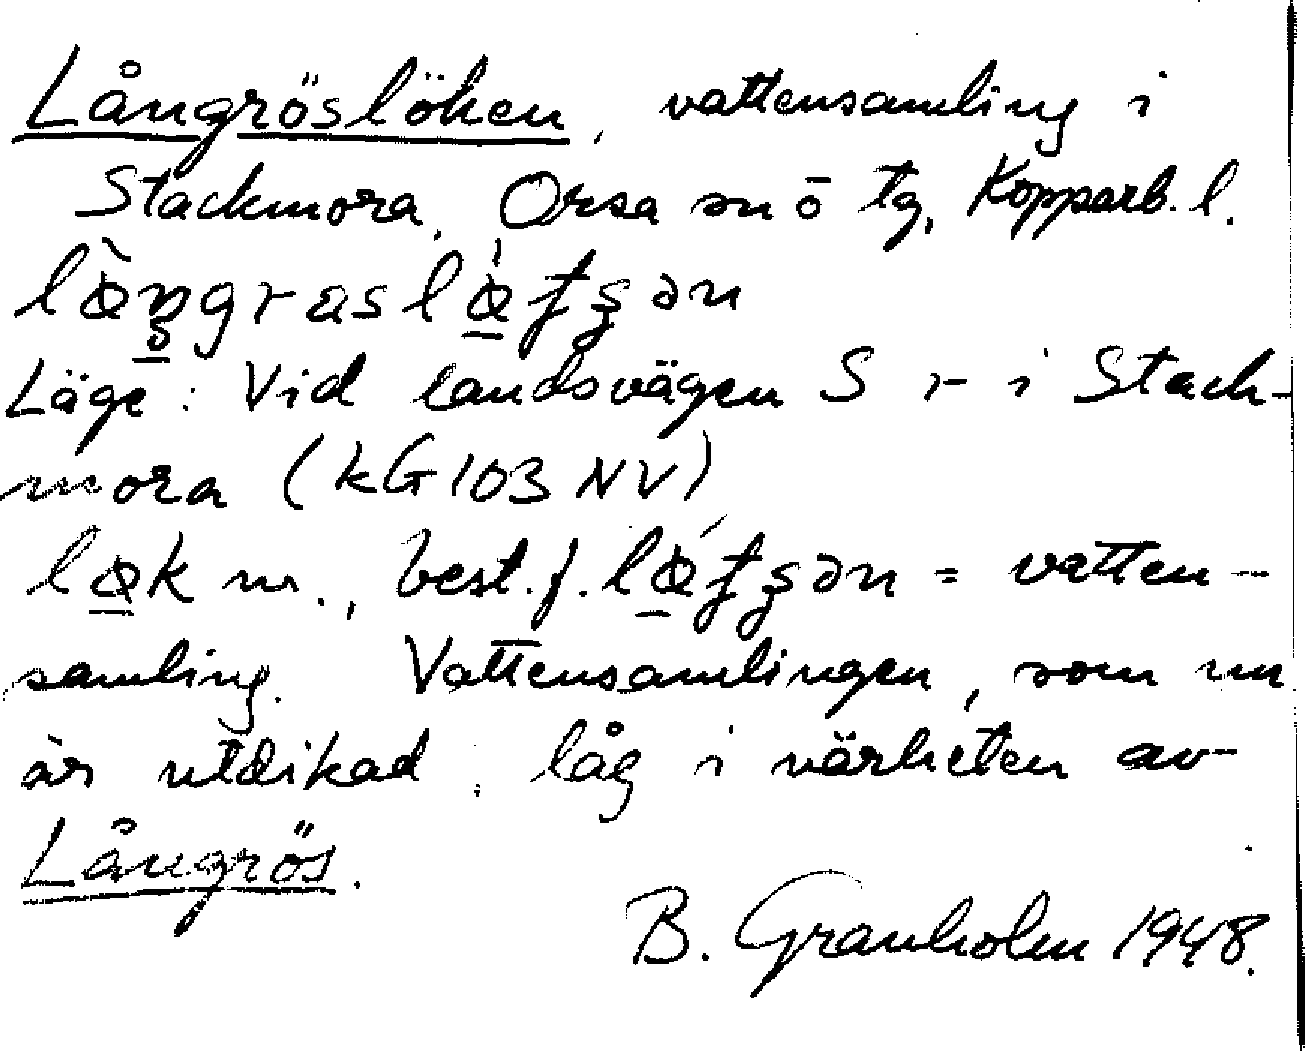 Långröslöken, vattensamling i
Stackmora, Orsa sn ö tg, Kopparb. l.
Läge: Vid landsvägen S r i Stack-
mora (kG 103 NV)
m., best.f. = vatten-
samling. Vattensamlingen, som nu
är utdikad, låg i närheten av
Långrös.
B. Granholm 1948.